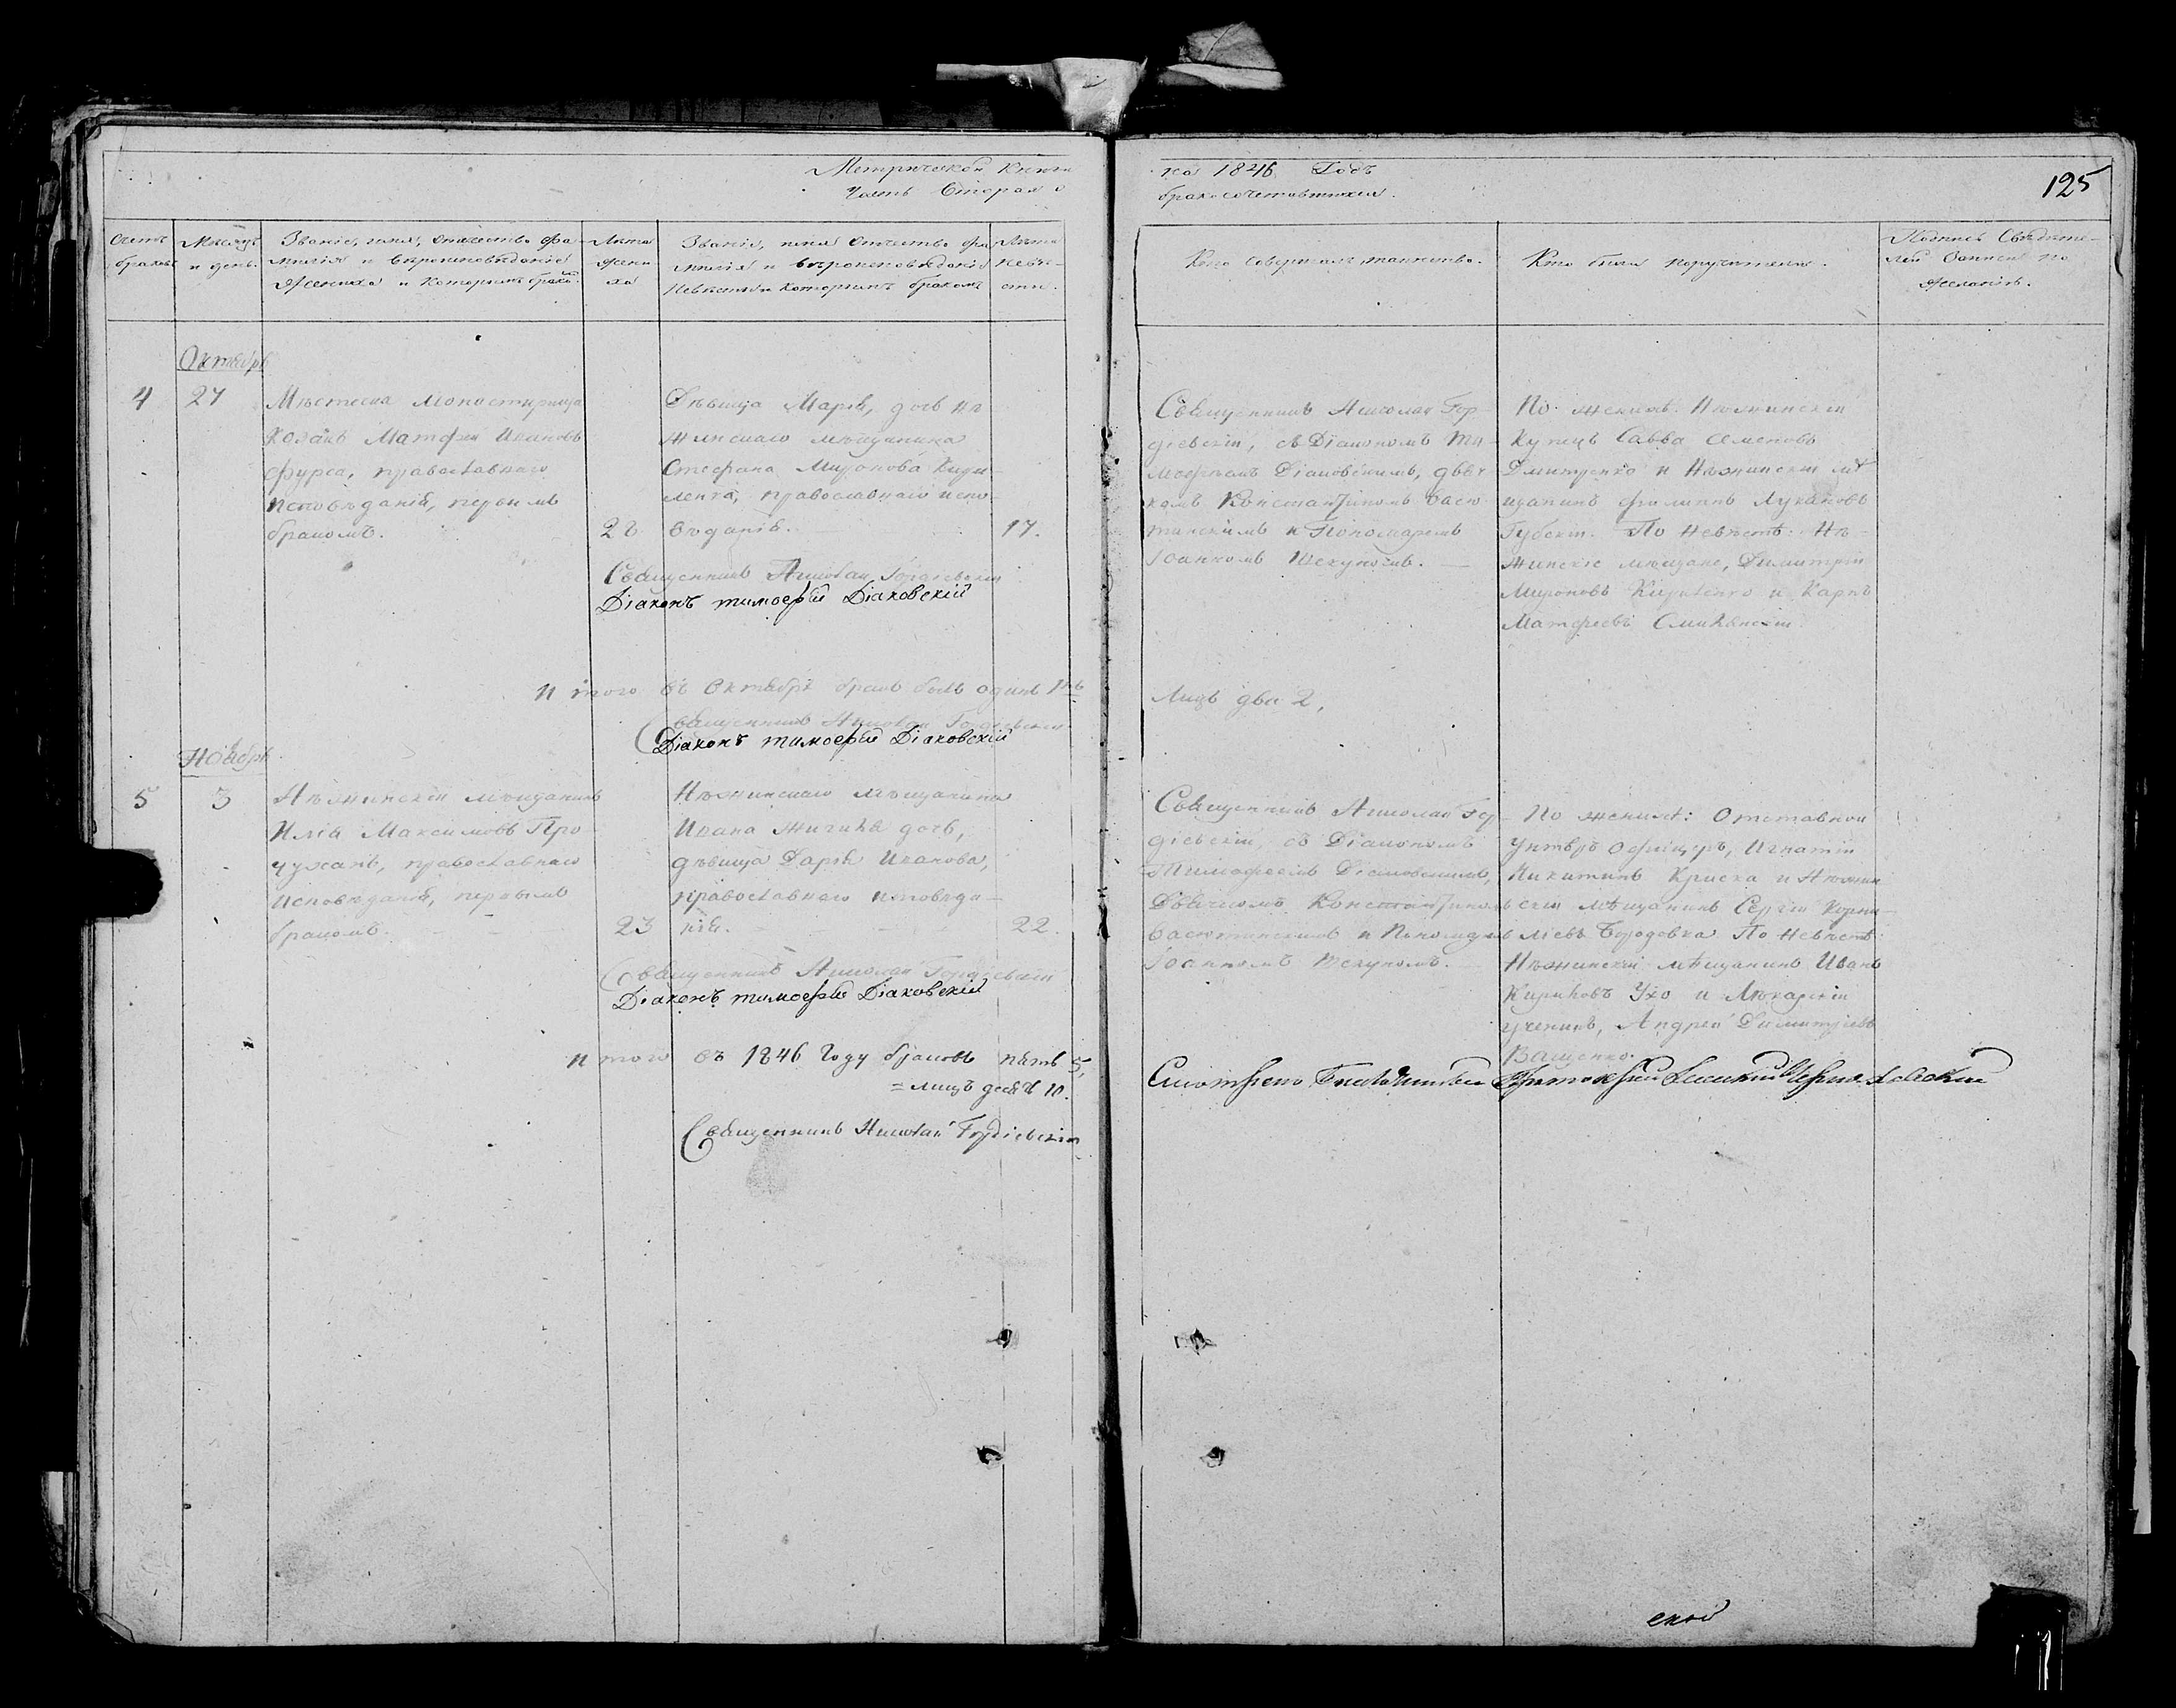 Метрической Книги
на 1846 Годъ
Часть Вторая о
бракосочетавшихся.
125
Счетъ браковъ
Месяцъ и день.
Званіе, имя, отчество фа-
милія и вероисповѣданіе
Жениха и которымъ бракомъ
Лита
жени
ха
Званіе, имя отчество фа
милія и вѣроисповѣданіе
Невѣсты и которымъ бракомъ
Лита
невѣ-
сты.
Кто совершалъ таинство.
Кто были поручители.
Подпись Свѣдите-
лей Записи по
желанію.
Октябрь
4
27
Мѣстечка Монастирища
Козакъ Матфей Ивановъ
Фурса, православнаго
исповѣданія, первымъ
бракомъ.
22
Дѣвица Марія, дочь Нѣ
жинскаго мѣщанина
Стефана Миронова Кири
ленка, православнаго испо-
вѣданія.
17.
Священникъ Николай Гор
діевскій, съ Діакономъ Ти
мофеемъ Діаковскимъ, дьяч
комъ Константиномъ
и Пономаремъ
Іоанномъ
По женихѣ: Нѣжинскій
Купецъ Савва Семеновъ
Дмитренко и Нѣжинскій мѣ
щанинъ Филиппъ Лукановъ
Губскій. По Невѣстѣ: Нѣ-
жинскіе мѣщане, Димитрій
Мироновъ Кириленко и Карпъ
Матфеевъ
Священникъ Николай Гордіевскій
Діаконъ тимофей Діаковскій
Итого въ Октябрѣ бракъ былъ одинъ 1нъ
Лицъ два 2,
Священникъ Николай Гордіевскій
Діаконъ тимофей Діаковскій
Ноябрь
5
3
Нѣжинскій мѣщанинъ
Илія Максимовъ Про
чуханъ, православнаго
исповѣданія, первымъ
бракомъ.
23
Нѣжинскаго мѣщанина
Ивана Жигиля дочь,
дѣвица Дарія Иванова,
православнаго исповѣда-
нія.
22.
Священникъ Николай Гор
діевскій, съ Діакономъ
Тимофеемъ Діаковскимъ,
Дьячкомъ Константиномъ
и Пономаремъ
Іоанномъ
По женихѣ: Отставной
унтеръ офицеръ, Игнатій
Никитинъ Криска и Нѣжин
скій мѣщанинъ Сергій Корни-
ліевъ Бородовка По Невѣстѣ:
Нѣжинскій мѣщанинъ Иванъ
Кириловъ Ухо и Лѣкарскій
ученикъ, Андрей Димитріевъ
Ващенко.
Священникъ Николай Гордіевскій
Діаконъ тимофей Діаковскій
Итого въ 1846 Году браковъ пять 5,
= лицъ десять 10.
Священникъ Николай Гордіевскій
ской